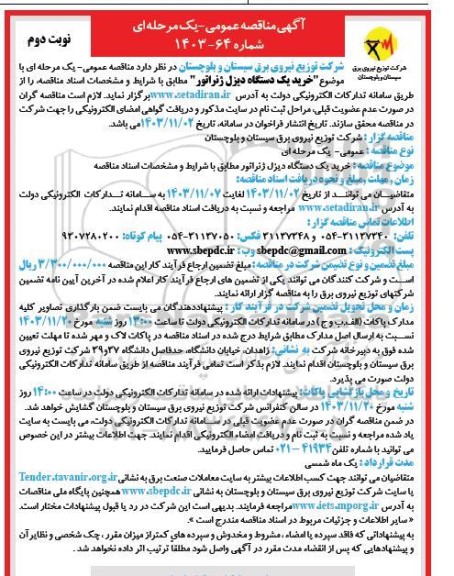 آگهی مناقصه عمومی-یک مرحله ای
شماره ۶۴-۱۴۰۳
نوبت دوم
شرکت توزیع نیروی برق
سیستان و بلوچستان
شرکت توزیع نیروی برق سیستان و بلوچستان در نظر دارد مناقصه عمومی- یک مرحله ای با
موضوع "خرید یک دستگاه دیزل ژنراتور" مطابق با شرایط و مشخصات اسناد مناقصه، را از
طریق سامانه تدارکات الکترونیکی دولت به آدرس www.setadiran.ir برگزار نماید. لازم است مناقصه گران
در صورت عدم عضویت قبلی، مراحل ثبت نام در سایت مذکور و دریافت گواهی امضای الکترونیکی را جهت شرکت
در مناقصه محقق سازند. تاریخ انتشار فراخوان در سامانه، تاریخ ۱۴۰۳/۱۱/۰۲ می باشد.
مناقصه گزار : شرکت توزیع نیروی برق سیستان و بلوچستان
نوع مناقصه : عمومی- یک مرحله ای
موضوع مناقصه : خرید یک دستگاه دیزل ژنراتور مطابق با شرایط و مشخصات اسناد مناقصه
زمان و مهلت ، مبلغ و نحوه دریافت اسناد مناقصه:
متقاضیـان می تواننـد از تاریخ ۱۴۰۳/۱۱/۰۲ لغایت ۱۴۰۳/۱۱/۰۷ به سـامانه تـدارکات الکترونیکی دولت
به آدرس www.setadiran.ir مراجعه و نسبت به دریافت اسناد مناقصه اقدام نمایند.
اطلاعات تماس مناقصه گزار :
تلفن: ۳۱۱۳۷۳۴۰-۰۵۴ و ۳۱۱۳۷۳۴۸ فکس: ۳۱۱۳۷۰۵۰-۰۵۴ پیام کوتاه: ۹۳۰۷۲۸۰۲۰۰
پست الکترونیک : sbepdc@gmail.com وب : www.sbepdc.ir
مبلغ تضمین و نوع تضمین شرکت در مناقصه: مبلغ تضمین ارجاع فرآیند کار این مناقصه ۳/۳۰۰/۰۰۰/۰۰۰ ریال
است و شرکت کنندگان می توانند یکی از تضمین های ارجاع فرآیند کار اعلام شده در آخرین آیین نامه تضمین
شرکتهای توزیع نیروی برق را به مناقصه گزار ارائه نمایند.
زمان و محل تحویل تضمین شرکت در فرآیند کار : پیشنهاددهندگان می بایست ضمن بارگذاری تصاویر کلیه
مدارک پاکات (الف،ب و ج) در سامانه تدارکات الکترونیکی دولت تا ساعت ۱۳:۰۰ روز شنبه مورخ ۱۴۰۳/۱۱/۲۰
نسبت به ارسال اصل مدارک مطابق شرایط درج شده در اسناد مناقصه در پاکات لاک و مهر شده تا مهلت تعیین
شده فوق به دبیرخانه شرکت به نشانی: زاهدان، خیابان دانشگاه، حدفاصل دانشگاه ۳۷و۳۹ شرکت توزیع نیروی
برق سیستان و بلوچستان اقدام نمایند. لازم بذکر است تمامی فرآیند مناقصه از طریق سامانه تدارکات الکترونیکی
دولت صورت می پذیرد.
تاریخ و محل بازگشایی پاکات: پیشنهادات ارائه شده در سامانه تدارکات الکترونیکی دولت در ساعت ۱۴:۰۰ روز
شنبه مورخ ۱۴۰۳/۱۱/۲۰ در سالن کنفرانس شرکت توزیع نیروی برق سیستان و بلوچستان گشایش خواهد شد.
در ضمن مناقصه گران در صورت عدم عضویت قبلی در سـامانه تدارکات الکترونیکی دولت، می بایست به سایت
یاد شده مراجعه و نسبت به ثبت نام و دریافت امضاء الکترونیکی اقدام نمایند. جهت اطلاعات بیشتر در این خصوص
می توانید با شماره تلفن ۴۱۹۳۴-۰۲۱ تماس حاصل فرمایید.
مدت قرارداد : یک ماه شمسی
متقاضیان می توانند جهت کسب اطلاعات بیشتر به سایت معاملات صنعت برق به نشانی Tender.tavanir.org.ir
یا سایت شرکت توزیع نیروی برق سیستان و بلوچستان به نشانی www.sbepdc.ir همچنین پایگاه ملی مناقصات
به آدرس www.iets.mporg.ir مراجعه فرمایند. بدیهی است این شرکت در رد یا قبول پیشنهادات مختار است.
« سایر اطلاعات و جزئیات مربوط در اسناد مناقصه مندرج است ».
به پیشنهاداتی که فاقد سپرده یا امضاء ، مشروط و مخدوش و سپرده های کمتراز میزان مقرر ، چک شخصی و نظایر آن
و پیشنهادهایی که پس از انقضاء مدت مقرر در آگهی واصل شود مطلقا ترتیب اثر داده نخواهد شد .